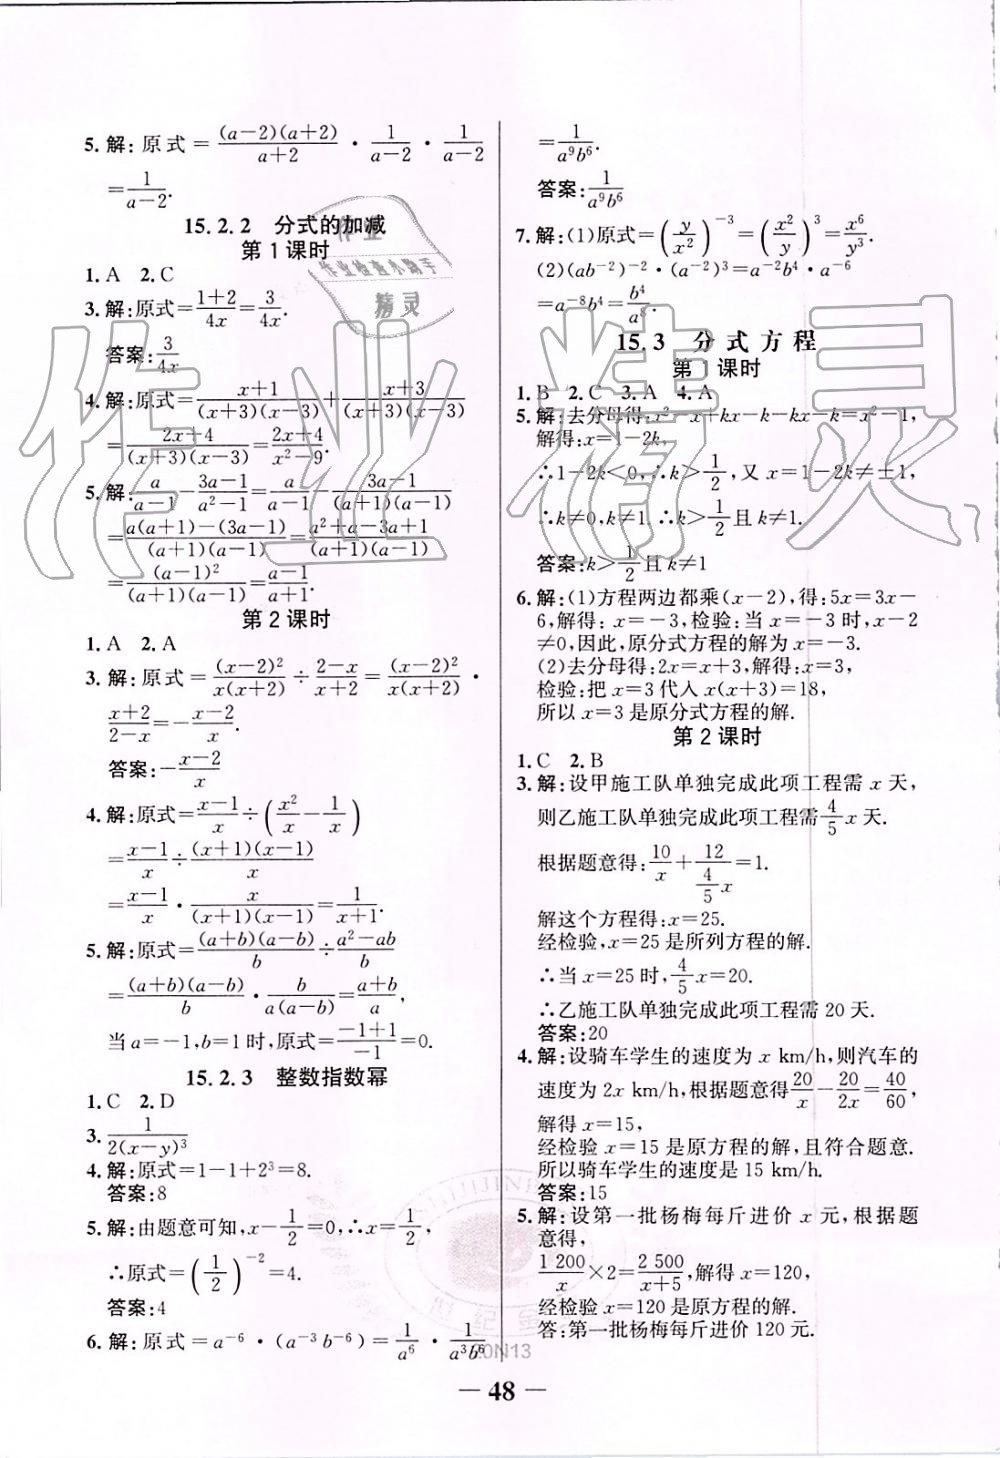 5. 解: 原式=\frac{(a-2)(a+2)}{a+2}·\frac{1}{a-2}·\frac{1}{a-2}
=\frac{1}{a-2}.
15.2.2 分式的加减
第1课时
1. A 2. C
3. 解:原式=\frac{1+2}{4x}=\frac{3}{4x}.
答案:\frac{3}{4x}
4. 解:原式=\frac{x+1}{(x+3)(x-3)}+\frac{x+3}{(x+3)(x-3)}
=\frac{2x+4}{(x+3)(x-3)}=\frac{2x+4}{x^2-9}.
5. 解:\frac{a}{a-1}-\frac{3a-1}{a^2-1}=\frac{a}{a-1}-\frac{3a-1}{(a+1)(a-1)}
=\frac{a(a+1)-(3a-1)}{(a+1)(a-1)}=\frac{a^2+a-3a+1}{(a+1)(a-1)}
=\frac{(a-1)^2}{(a+1)(a-1)}=\frac{a-1}{a+1}.
第2课时
1. A 2. A
3. 解:原式=\frac{(x-2)^2}{x(x+2)}÷\frac{2-x}{x+2}=\frac{(x-2)^2}{x(x+2)}·
\frac{x+2}{2-x}=-\frac{x-2}{x}.
答案:-\frac{x-2}{x}
4. 解:原式=\frac{x-1}{x}÷(\frac{x^2}{x}-\frac{1}{x})
=\frac{x-1}{x}÷\frac{(x+1)(x-1)}{x}
=\frac{x-1}{x}·\frac{x}{(x+1)(x-1)}=\frac{1}{x+1}.
5. 解:原式=\frac{(a+b)(a-b)}{b}÷\frac{a^2-ab}{b}
=\frac{(a+b)(a-b)}{b}·\frac{b}{a(a-b)}=\frac{a+b}{a},
当a=-1,b=1时,原式=\frac{-1+1}{-1}=0.
15.2.3 整数指数幂
1. C 2. D
3. \frac{1}{2(x-y)^3}
4. 解:原式=1-1+2^3=8.
答案:8
5. 解:由题意可知,x-\frac{1}{2}=0,∴x=\frac{1}{2},
∴原式=(\frac{1}{2})^{-2}=4.
答案:4
6. 解:原式=a^{-6}·(a^{-3}b^{-6})=\frac{1}{a^6}·\frac{1}{a^3b^6}
=\frac{1}{a^9b^6}.
答案:\frac{1}{a^9b^6}
7. 解:(1)原式=(\frac{y}{x^2})^{-3}=(\frac{x^2}{y})^3=\frac{x^6}{y^3}.
(2)(ab^{-2})^{-2}·(a^{-2})^3=a^{-2}b^4·a^{-6}
=a^{-8}b^4=\frac{b^4}{a^8}.
15.3 分式方程
第1课时
1. B 2. C 3. A 4. A
5. 解:去分母得:x^2-x+kx-k-kx-k=x^2-1,
解得:x=1-2k,
∴1-2k<0,∴k>\frac{1}{2},又x=1-2k≠±1,
∴k≠0,k≠1.∴k>\frac{1}{2}且k≠1.
答案:k>\frac{1}{2}且k≠1
6. 解:(1)方程两边都乘(x-2),得:5x=3x-
6,解得:x=-3,检验:当x=-3时,x-2
≠0,因此,原分式方程的解为x=-3.
(2)去分母得:2x=x+3,解得:x=3,
检验:把x=3代入x(x+3)=18,
所以x=3是原分式方程的解.
第2课时
1. C 2. B
3. 解:设甲施工队单独完成此项工程需x天,
则乙施工队单独完成此项工程需\frac{4}{5}x天.
根据题意得:\frac{10}{x}+\frac{12}{\frac{4}{5}x}=1.
解这个方程得:x=25.
经检验,x=25是所列方程的解.
∴当x=25时,\frac{4}{5}x=20.
∴乙施工队单独完成此项工程需20天.
答案:20
4. 解:设骑车学生的速度为x km/h,则汽车的
速度为2x km/h,根据题意得\frac{20}{x}-\frac{20}{2x}=\frac{40}{60},
解得x=15,
经检验x=15是原方程的解,且符合题意.
所以骑车学生的速度是15 km/h.
答案:15
5. 解:设第一批杨梅每斤进价x元,根据题
意得,
\frac{1 200}{x}×2=\frac{2 500}{x+5},解得x=120,
经检验x=120是原方程的解.
答:第一批杨梅每斤进价120元.
— 48 —
作业精灵
作业
作业检查小助手
精灵